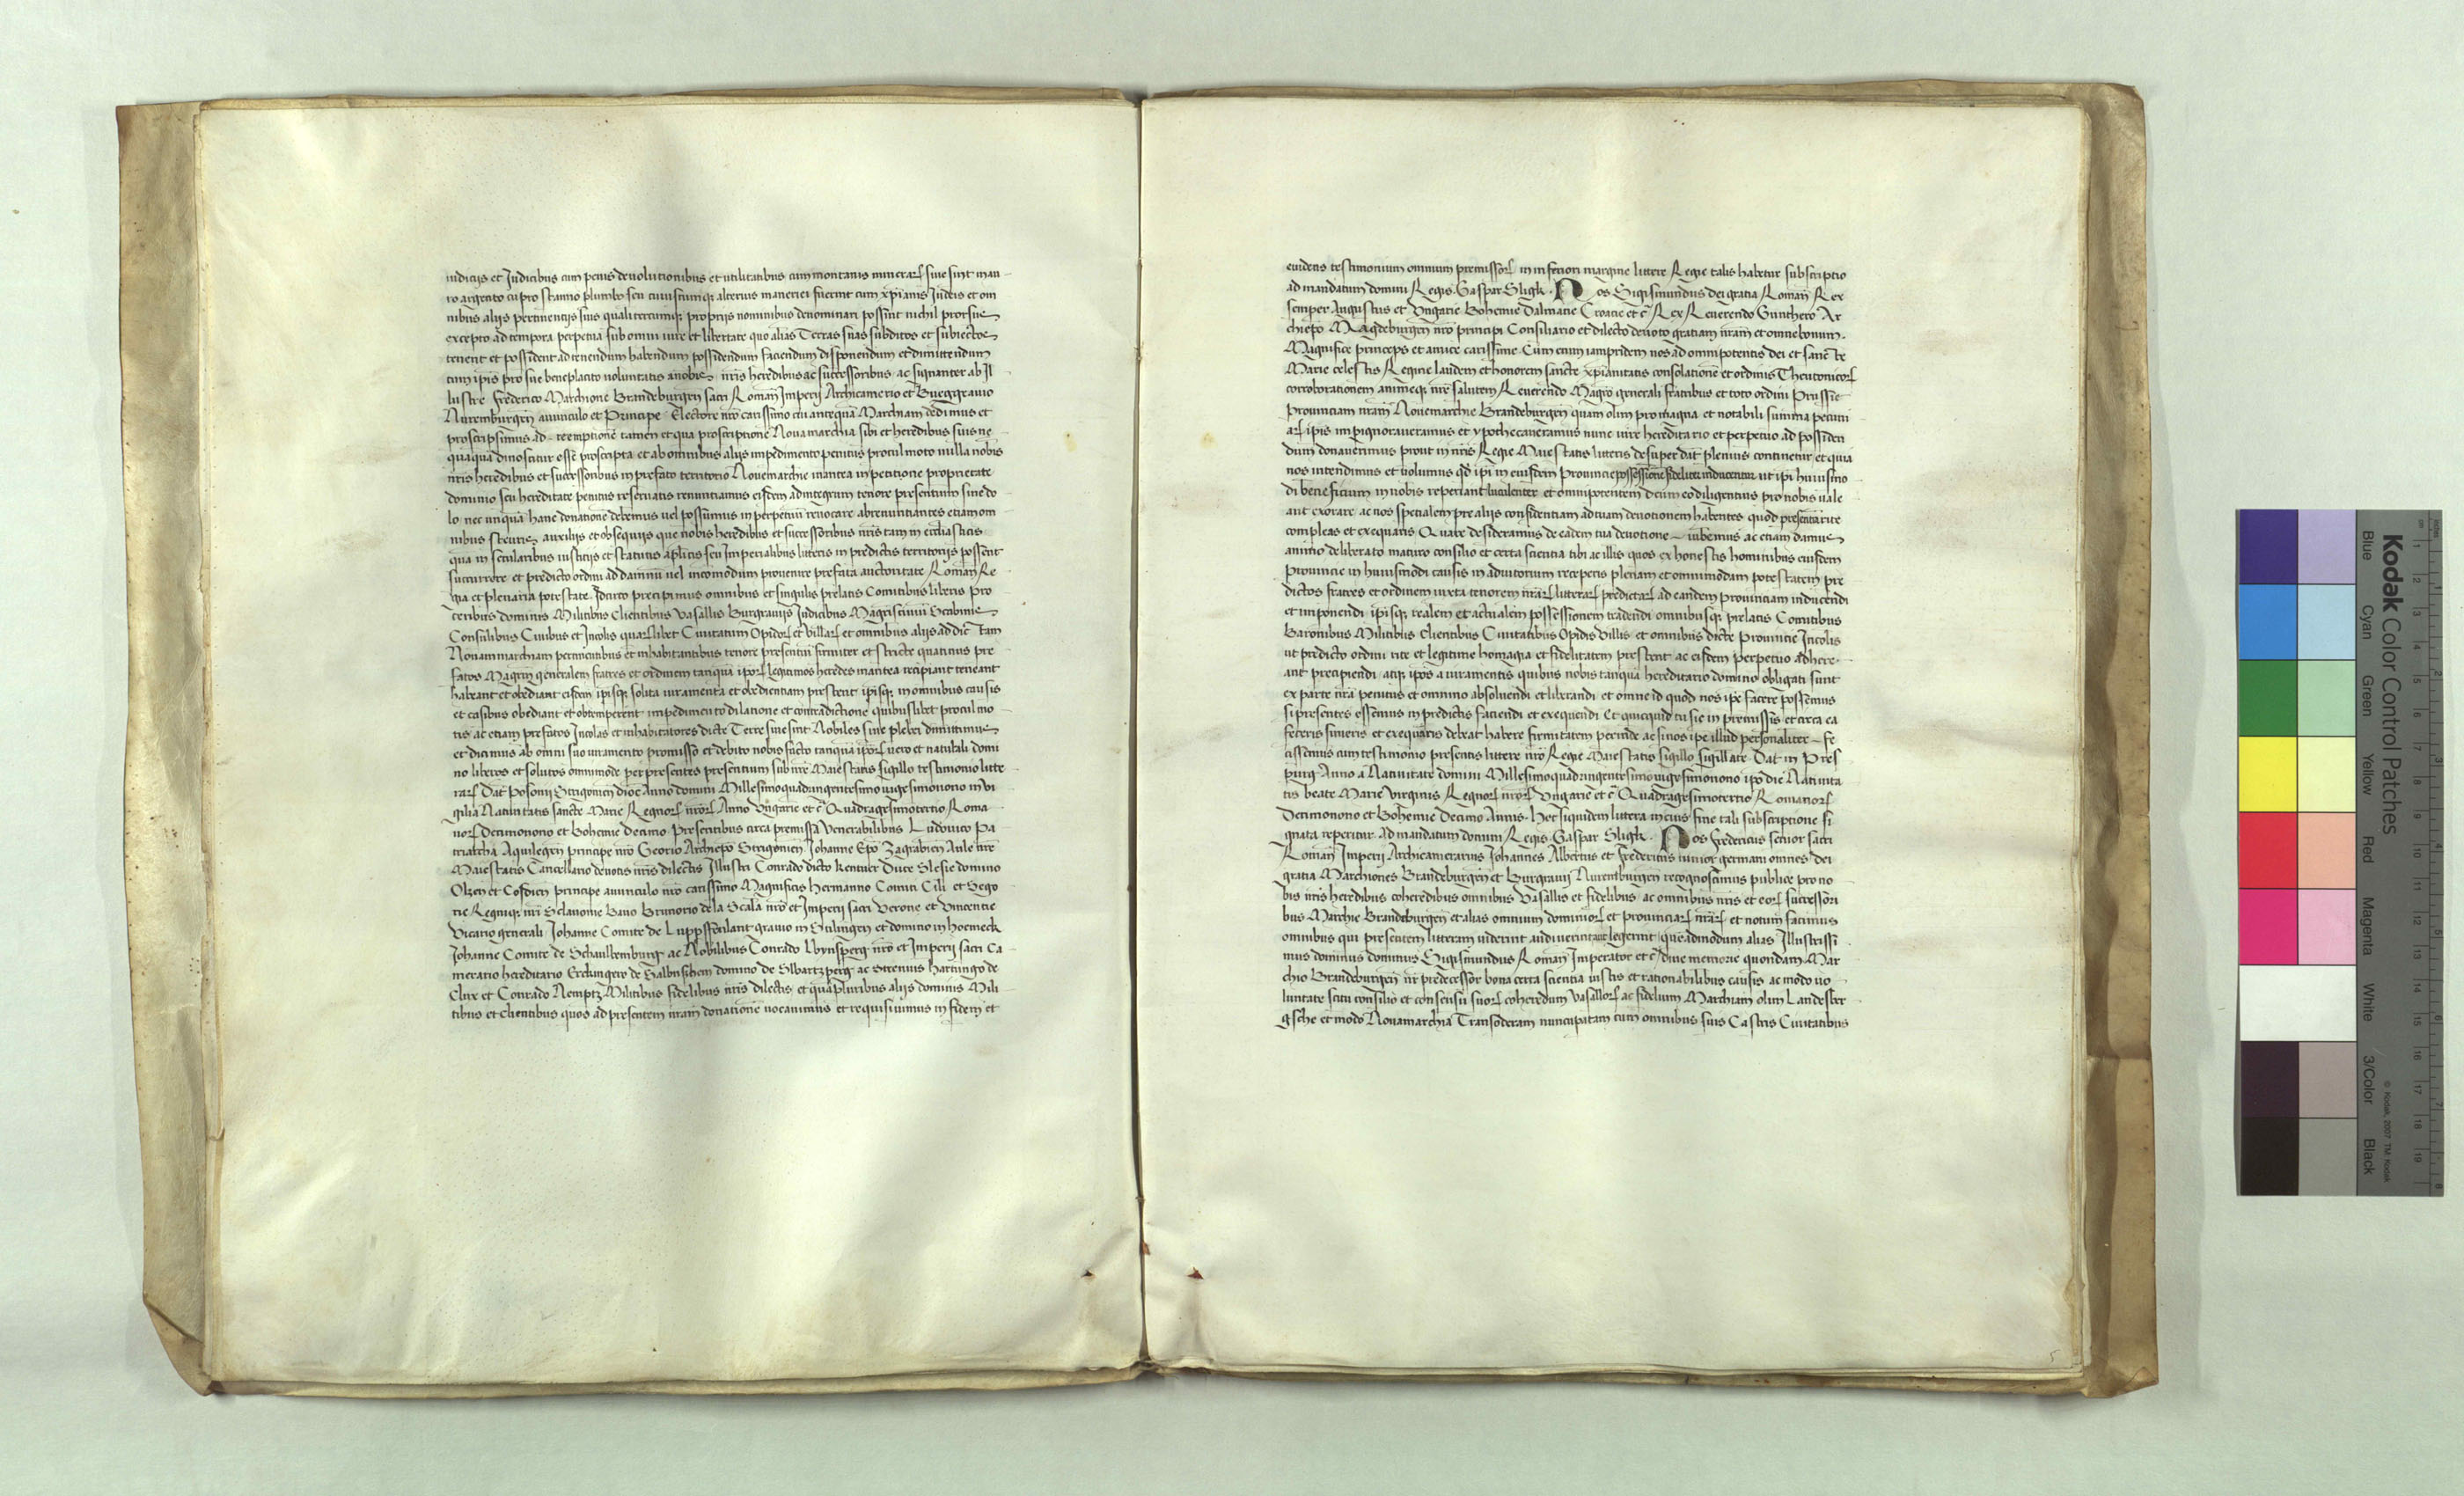 iudicijs et Judicibus cum penis deuolutionibus et utilitatibus cum montanis minerarꝝ siue sint in au
ro argento cupro stanno plumbo seu cuiuscumqꝫ alterius maneriei fuerint cum xp̄ianis Judeis et om
nibus alijs pertinentijs suis qualitercumqꝫ proprijs nominibus denominari possint nichil prorsus
excepto ad tempora perpetua sub omni iure et libertate quo alias Terras suas subditos et subiectos
tenent et possident ad tenendum habendum possidendum faciendum disponendum et dimittendum
cum ip̄is pro sue beneplacito voluntatis a nobis nr̄is heredibus ac successoribus ac signanter ab Jl
lustre Frederico Marchione Brandeburgen̄ sacri Roman̄ Imperij Archicamerio et Burggrauio
Nuremburgen̄ auunculo et Principe Electore nr̄o carissimo cui antequā Marchiam dedimus et
proscripsimus ad reemptionē tamen et qua proscriptione Nouamarchia sibi et heredibus suis ne
quaquā dinoscitur esse proscripta et ab omnibus alijs impedimento penitus procul moto nulla nobis
nr̄is heredibus et successoribus in prefato territorio Nouemarchie in antea in petitione proprietate
dominio seu hereditate penitus reseruatis renunciamus eisdem ad integrum tenore presentium sine do
lo nec unquā hanc donationē debemus uel possumus in perpetuū reuocare abrenuntiantes etiam om
nibus steuris auxilijs et obsequijs que nobis heredibus et successoribus nr̄is tam in ecclīasticis
qua in secularibus iusticijs et statutis ap̄licis seu Imperialibus litteris in predictis territorijs possent
succurrere et predicto ordini ad damnū uel incomodum prouenire prefata auctoritate Roman̄ Re
gia et plenaria potestate. Idcirco precipimus omnibus et singulis prelatis Comitibus liberis Pro
ceribus dominis Militibus Clientibus Vasallis Burgrauijs Judicibus Magrīsciuiū Scabinis
Consulibus Ciuibus et Incolis quarꝝlibet Ciuitatum Opidorꝝ et Villarꝝ et omnibus alijs ad dic̄tam
Nouammarchiam pertinentibus et inhabitantibus tenore presentiū firmiter et stricte quatinus pre
fatos Magr̄m generalem fratres et ordinem tanquā ip̄orꝝ legitimos heredes in antea recipiant teneant
habeant et obediant eisdem ip̄isqꝫ solita iuramenta et obedientiam prestent ip̄isqꝫ in omnibus causis
et casibus obediant et obtemperent impedimento dilatione et contradictione quibuslibet procul mo
tis ac etiam prefatos Incolas et inhabitatores dicte Terre siue sint Nobiles siue plebei dimittimus
et dicimus ab omni suo iuramento promisso et debito nobis facto tanquā ip̄orꝝ uero et naturali domi
no liberos et solutos omnimode per presentes presentium sub nr̄e Maiestatis sigillo testimonio litte
rarꝝ Dat̄ Posonij Strigonien̄ dioc̄ Anno domini Millesimoquadringentesimouigesimonono in vi
gilia Natiuitatis sancte Marie Regnorꝝ nr̄orꝝ Anno Vngarie et c̄ Quadragesimotertio Roma
norꝝ Decimonono et Bohemie Decimo Presentibus circa premissa Venerabilibus Ludouico Pa
triarcha Aquilegen̄ principe nr̄o Georio Archiep̄o Strigonien̄ Johanne Ep̄o Zagrabien̄ Aule nr̄e
Maiestatis Cancellario deuotis nr̄is dilectis Illustri Conrado dicto kentner Duce Slesie domino
Olzen et Cosdien principe auunculo nr̄o carissimo Magnificis Hermanno Comiti Cili et Sego
rie Regniqꝫ nr̄i Sclauonie Bano Brunorio dela Scala nr̄o et Imperij sacri Verone et Vincentie
Vicario generali Johanne Comite de Luppff lantgrauio in Stulingen et domino in hoemeck
Johanne Comite de Schaulbemburg ac Nobilibus Conrado Wynsperg nr̄o et Imperij sacri Ca
merario hereditario Erckingero de Salbinschem domino de Swartzperg ac Strenuis Hartungo de
Clux et Conrado Nemptz Militibus fidelibus nr̄is dilectis et quāpluribus alijs dominis Mili
tibus et clientibus quos ad presentem nr̄am donationē uocauimus et requisiuimus in fidem et
euidens testimonium omnium premissorꝝ in inferiori margine littere Regie talis habetur subscriptio
ad mandatum domini Regis. Gaspar Sligk. Nos Sigismundus dei gratia Roman̄ Rex
semper Augustus et Vngarie Bohemie Dalmatie Croatie et c̄ Rex Reuerendo Gunthero Ar
chiep̄o Magdeburgen̄ nr̄o principi Consiliario et dilecto deuoto gratiam nr̄am et omne bonum.
Magnifice princeps et amice carissime. Cum enim iampridem nos ad omnipotentis dei et sanc̄te
Marie celestis Regine laudem et honorem sancte xp̄ianitatis consolationē et ordinis Theutonicorꝝ
corroborationem animeqꝫ nr̄e salutem Reuerendo Magr̄o generali fratribus et toto ordini Prussie
Prouinciam nr̄am Nouemarchie Brandeburgen̄ quam olim pro magna et notabili summa pecuni
arꝝ ip̄is impignoraueramus et ypothecaueramus nunc iure hereditario et perpetuo ad possiden
dum donauerimus prout in nr̄is Regie Maiestatis litteris desuper dat̄ plenius continetur et quia
nos intendimus et uolumus qd̄ ip̄i in eiusdem Prouincie possessionē fideliter inducentur ut ip̄i huiusmo
di beneficium in nobis reperiant luculenter et omnipotentem deum eo diligentius pro nobis uale
ant exorare ac nos specialem pre alijs confidentiam ad tuam deuotionem habentes quod presentia rite
compleas et exequaris Quare desideramus de eadem tua deuotione iubemus ac etiam damus
animo deliberato maturo consilio et certa scientia tibi ac illis quos ex honestis hominibus eiusdem
Prouincie in huiusmodi causis in adiutorium receperis plenam et omnimodam potestatem pre
dictos fratres et ordinem iuxta tenorem nr̄arꝝ litterarꝝ predictarꝝ ad eandem prouinciam inducendi
et imponendi ip̄isqꝫ realem et actualem possessionem tradendi omnibusqꝫ prelatis Comitibus
Baronibus Militibus Clientibus Ciuitatibus Opidis Villis et omnibus dicte Prouincie Incolis
ut predicto ordini rite et legitime homagia et fidelitatem prestent ac eisdem perpetuo adhere
ant precipiendi atqꝫ ip̄os a iuramentis quibus nobis tanquā hereditario domino obligati sunt
ex parte nr̄a penitus et omnino absoluendi et liberandi et omne id quod nos ip̄e facere possemus
si presentes essemus in predictis faciendi et exequendi Et quicquid tu sic in premissis et circa ea
feceris siueris et exequaris debeat habere firmitatem perinde ac si nos ip̄e illud personaliter fe
cissemus cum testimonio presentis littere nr̄o Regie Maiestatis sigillo sigillate. Dat̄ in Pres
purg Anno a Natiuitate domini Millesimoquadringentesimouigesimonono ip̄o die Natiuita
tis beate Marie Virginis Regnorꝝ nr̄orꝝ Vngarie et c̄ Quadragesimotertio Romanorꝝ
Decimonono et Bohemie Decimo Annis. Hec siquidem littera in eius fine tali subscriptione si
gnata reperitur. Ad mandatum domini Regis. Gaspar Sligk. Nos Fredericus senior sacri
Roman̄ Imperij Archicamerarius Johannes Albertus et Fredericus iunior germani omnes dei
gratia Marchiones Brandeburgen̄ et Burgrauij Nuremburgen̄ recognoscimus publice pro no
bis nr̄is heredibus coheredibus omnibus Vasallis et fidelibus ac omnibus nr̄is et eorꝝ successori
bus Marchie Brandeburgen̄ et alias omnium dominiorꝝ et prouinciarꝝ nr̄arꝝ et notum facimus
omnibus qui presentem litteram uiderint audiuerint aut legerint queadmodum alias Illustrissi
mus dominus dominus Sigismundus Roman̄ Imperator et c̄ diue memorie quondam Mar
chio Brandeburgen̄ nr̄ predecessor bona certa scientia iustis et rationabilibus causis ac modo uo
luntate scitu consilio et consensu suorꝝ coheredum Vasallorꝝ ac fidelium Marchiam olim Landesber
gsche et modo Nouamarchia Transoderam nuncupatam cum omnibus suis Castris Ciuitatibus
5
Kodak Color Control Patches
Blue Cyan Green Yellow Red Magenta White 3/Color Black
© Kodak, 2007 TM: Kodak